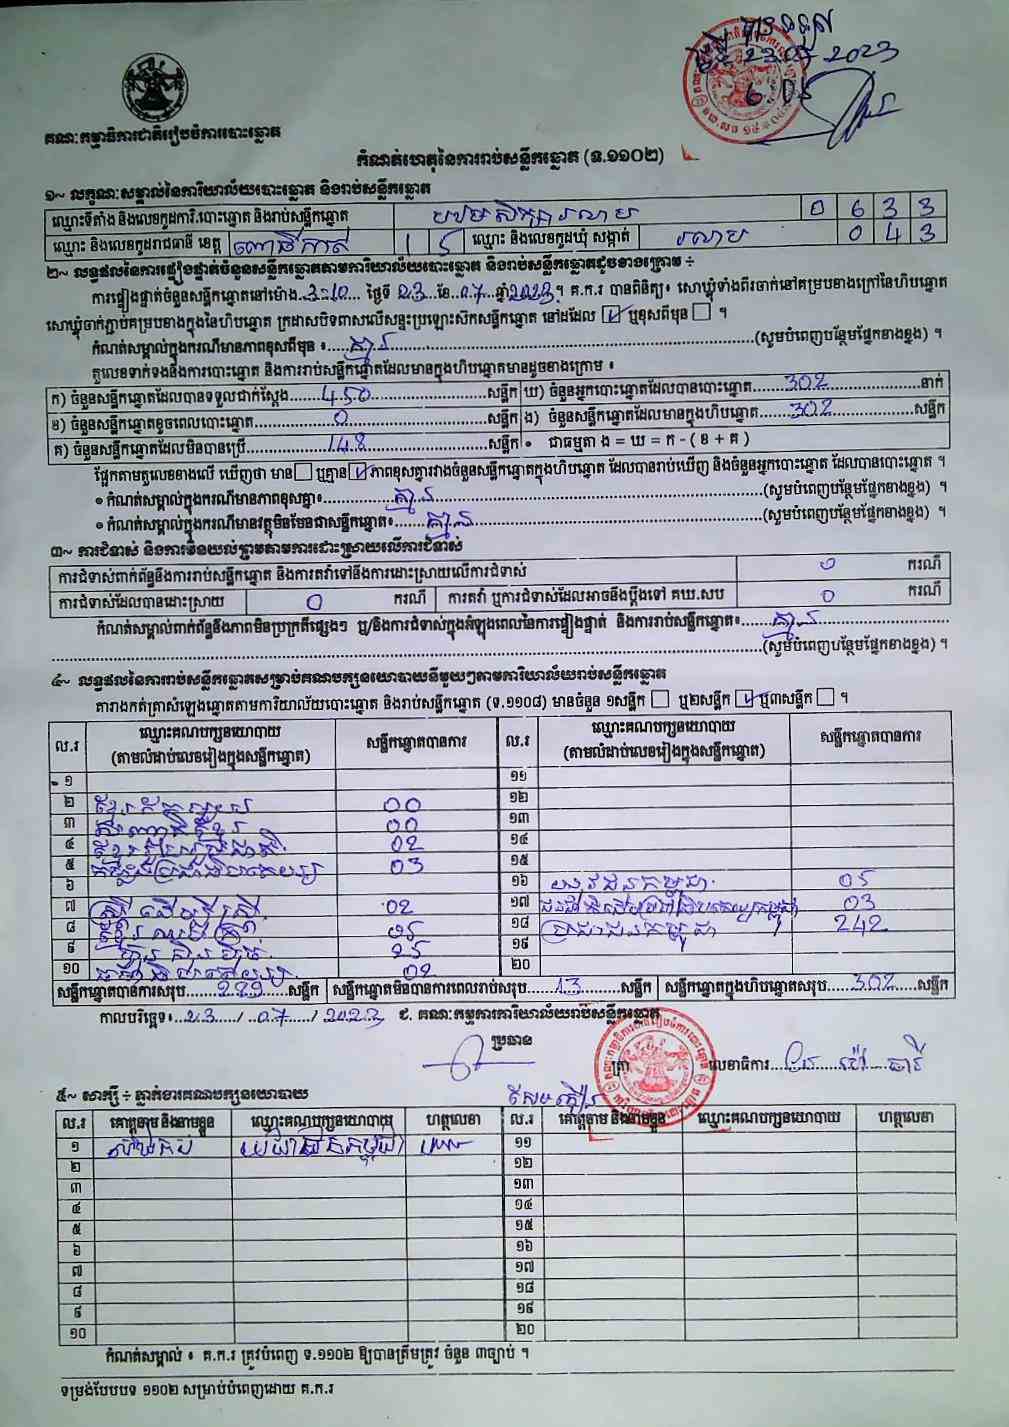 23.07.2023
គណៈកម្មាធិការជាតិរៀបចំការបោះឆ្នោត
កំណត់ហេតុនៃការរាប់សន្លឹកឆ្នោត (ទ.១១០២)
១~ លក្ខណៈសម្គាល់នៃការិយាល័យបោះឆ្នោត និងរាប់សន្លឹកឆ្នោត
ឈ្មោះទីតាំង និងលេខកូដការិ.បោះឆ្នោត និងរាប់សន្លឹកឆ្នោត 0 6 3 3
ឈ្មោះ និងលេខកូដរាជធានី ខេត្ត ពោធិ៍សាត់ 1 5 ឈ្មោះ និងលេខកូដឃុំ សង្កាត់ 0 4 3
២~ លទ្ធផលនៃការផ្ទៀងផ្ទាត់ចំនួនសន្លឹកឆ្នោតតាមការិយាល័យបោះឆ្នោត និងរាប់សន្លឹកឆ្នោតដូចខាងក្រោម ÷
ការផ្ទៀងផ្ទាត់ចំនួនសន្លឹកឆ្នោតនៅម៉ោង 3:10 ថ្ងៃទី 23 ខែ 07 ឆ្នាំ 2023 ។ គ.ក.រ បានពិនិត្យ៖ សោឃ្លុំទាំងពីរចាក់នៅគម្របខាងក្រៅនៃហិបឆ្នោត
សោឃ្លុំចាក់ភ្ជាប់គម្របខាងក្នុងនៃហិបឆ្នោត ក្រដាសបិទពាសលើសន្ទះប្រឡោះស៊កសន្លឹកឆ្នោត នៅដដែល ☑ ឬខុសពីមុន ☐ ។
កំណត់សម្គាល់ក្នុងករណីមានភាពខុសពីមុន ៖ គ្មាន (សូមបំពេញបន្ថែមផ្នែកខាងខ្នង) ។
តួលេខទាក់ទងនឹងការបោះឆ្នោត និងការរាប់សន្លឹកឆ្នោតដែលមានក្នុងហិបឆ្នោតមានដូចខាងក្រោម ៖
ក) ចំនួនសន្លឹកឆ្នោតដែលបានទទួលជាក់ស្តែង 450 សន្លឹក ឃ) ចំនួនអ្នកបោះឆ្នោតដែលបានបោះឆ្នោត 302 នាក់
ខ) ចំនួនសន្លឹកឆ្នោតខូចពេលបោះឆ្នោត 0 សន្លឹក ង) ចំនួនសន្លឹកឆ្នោតដែលមានក្នុងហិបឆ្នោត 302 សន្លឹក
គ) ចំនួនសន្លឹកឆ្នោតដែលមិនបានប្រើ 148 សន្លឹក • ជាធម្មតា ង = ឃ = ក - ( ខ + គ )
ផ្អែកតាមតួលេខខាងលើ ឃើញថា មាន ☐ ឬគ្មាន ☑ ភាពខុសគ្នារវាងចំនួនសន្លឹកឆ្នោតក្នុងហិបឆ្នោត ដែលបានរាប់ឃើញ និងចំនួនអ្នកបោះឆ្នោត ដែលបានបោះឆ្នោត ។
• កំណត់សម្គាល់ក្នុងករណីមានភាពខុសគ្នា៖ គ្មាន (សូមបំពេញបន្ថែមផ្នែកខាងខ្នង) ។
• កំណត់សម្គាល់ក្នុងករណីមានវត្ថុមិនមែនជាសន្លឹកឆ្នោត៖ គ្មាន (សូមបំពេញបន្ថែមផ្នែកខាងខ្នង) ។
៣~ ការជំទាស់ និងការមិនយល់ព្រមតាមការដោះស្រាយលើការជំទាស់
ការជំទាស់ពាក់ព័ន្ធនឹងការរាប់សន្លឹកឆ្នោត និងការតវ៉ាទៅនឹងការដោះស្រាយលើការជំទាស់ 0 ករណី
ការជំទាស់ដែលបានដោះស្រាយ 0 ករណី ការតវ៉ា ឬការជំទាស់ដែលអាចនឹងប្តឹងទៅ គឃ.សប 0 ករណី
កំណត់សម្គាល់ពាក់ព័ន្ធនឹងភាពមិនប្រក្រតីផ្សេងៗ ឬ/និងការជំទាស់ក្នុងអំឡុងពេលនៃការផ្ទៀងផ្ទាត់ និងការរាប់សន្លឹកឆ្នោត៖ គ្មាន
(សូមបំពេញបន្ថែមផ្នែកខាងខ្នង) ។
៤~ លទ្ធផលនៃការរាប់សន្លឹកឆ្នោតសម្រាប់គណបក្សនយោបាយនីមួយៗតាមការិយាល័យរាប់សន្លឹកឆ្នោត
តារាងកត់ត្រាសំឡេងឆ្នោតតាមការិយាល័យបោះឆ្នោត និងរាប់សន្លឹកឆ្នោត (ទ.១១០៨) មានចំនួន ១សន្លឹក ☐ ឬ២សន្លឹក ☑ ឬ៣សន្លឹក ☐ ។
ល.រ ឈ្មោះគណបក្សនយោបាយ (តាមលំដាប់លេខរៀងក្នុងសន្លឹកឆ្នោត) សន្លឹកឆ្នោតបានការ ល.រ ឈ្មោះគណបក្សនយោបាយ (តាមលំដាប់លេខរៀងក្នុងសន្លឹកឆ្នោត) សន្លឹកឆ្នោតបានការ
១ ១១
២ 00 ១២
៣ 00 ១៣
៤ 02 ១៤
៥ 03 ១៥
៦ ១៦ 05
៧ ស្ត្រីដើម្បីស្ត្រី 02 ១៧ 03
៨ ១៨ ប្រជាជនកម្ពុជា 242
៩ ១៩
១០ 02 ២០
សន្លឹកឆ្នោតបានការសរុប 289 សន្លឹក សន្លឹកឆ្នោតមិនបានការពេលរាប់សរុប 13 សន្លឹក សន្លឹកឆ្នោតក្នុងហិបឆ្នោតសរុប 302 សន្លឹក
កាលបរិច្ឆេទ៖ 23 / 07 / 2023 ជ. គណៈកម្មការការិយាល័យរាប់សន្លឹកឆ្នោត
ប្រធាន ត្រា លេខាធិការ
៥~ សាក្សី ÷ ភ្នាក់ងារគណបក្សនយោបាយ
ល.រ គោត្តនាម និងនាមខ្លួន ឈ្មោះគណបក្សនយោបាយ ហត្ថលេខា ល.រ គោត្តនាម និងនាមខ្លួន ឈ្មោះគណបក្សនយោបាយ ហត្ថលេខា
១ ១១
២ ១២
៣ ១៣
៤ ១៤
៥ ១៥
៦ ១៦
៧ ១៧
៨ ១៨
៩ ១៩
១០ ២០
កំណត់សម្គាល់ ៖ គ.ក.រ ត្រូវបំពេញ ទ.១១០២ ឱ្យបានត្រឹមត្រូវ ចំនួន ៣ច្បាប់ ។
ទម្រង់បែបបទ ១១០២ សម្រាប់បំពេញដោយ គ.ក.រ